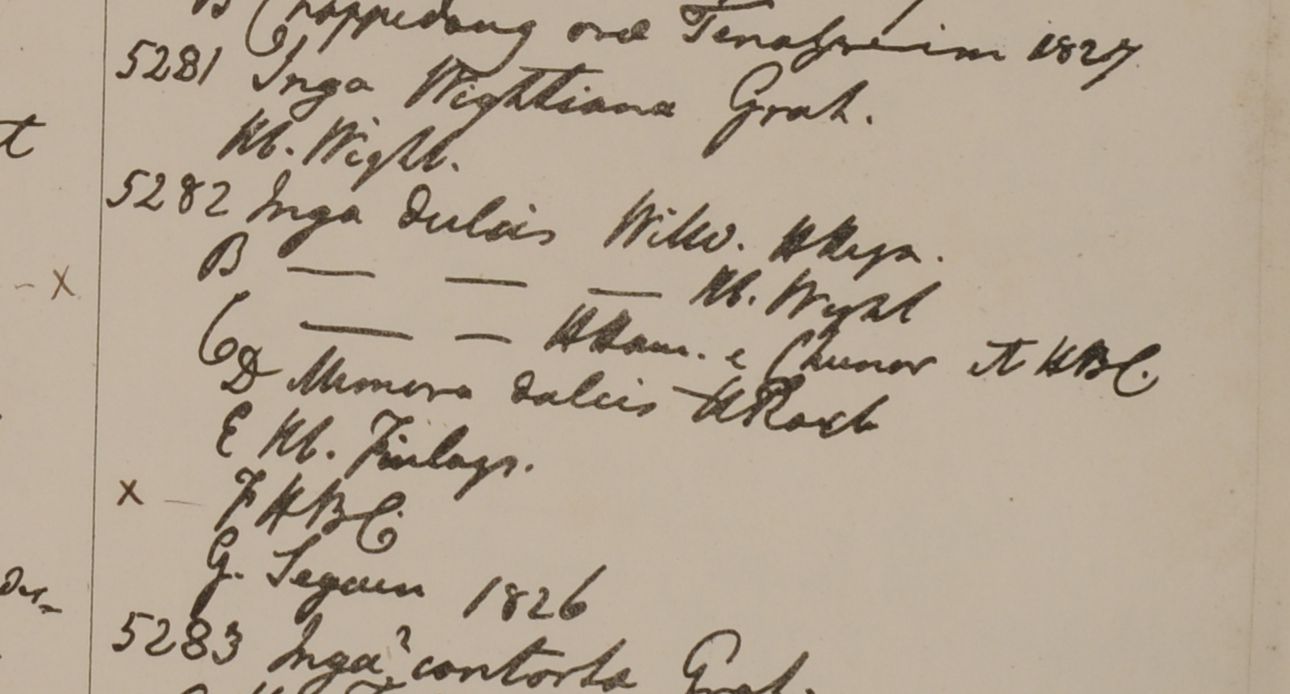 B Chappedong oræ Tenasserim 1827
5281 Inga Wightiana Grah.
Hb. Wight.
5282 Inga dulcis Willd. HHeyn.
B — — — Hb. Wight
C — — HHam. e Chunar et HBC.
D Mimosa dulcis HRoxb
E Hb. Finlays.
x F HBC.
G. Segain 1826
5283 Inga? contorta Grah.